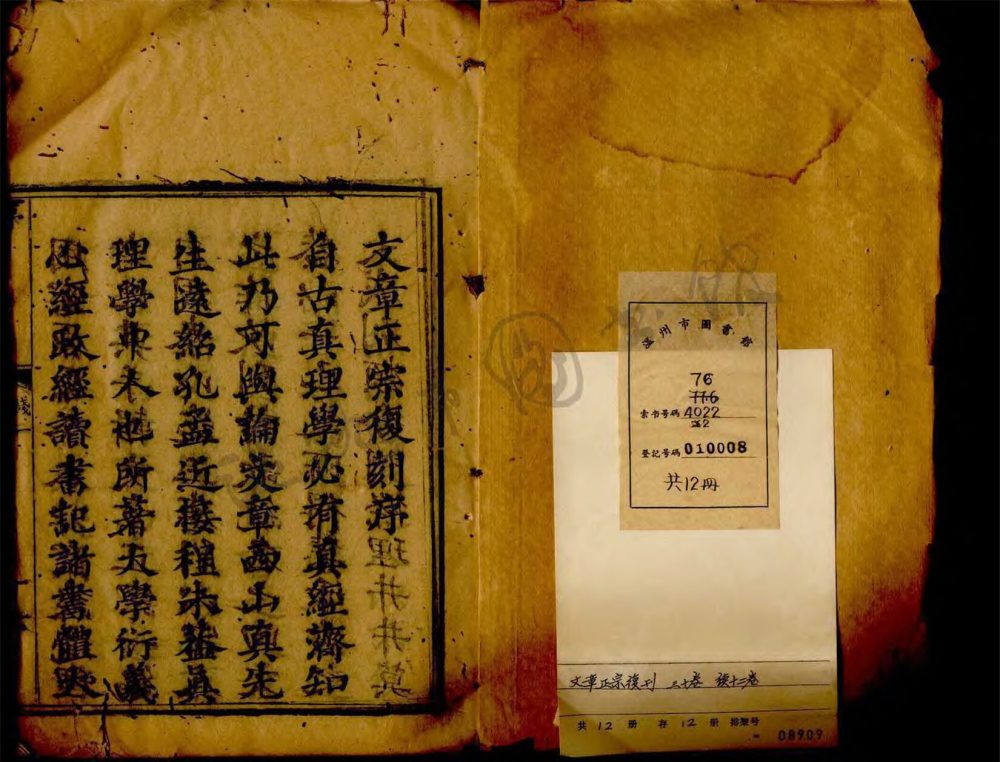 文章正宗復刻序
自古真理學必有真經濟知
此乃可與論文章西山真先
生遠紹孔孟近接程朱蓋真
理學來所著大學衍義
心經政經讀書記諸書體
温州市圖書館
76
776
索书号碼 4022
登記号碼 010008
共12冊
文章正宗復刊 三十卷 續十二卷
共 12 册 存 12 册 排架号
08909